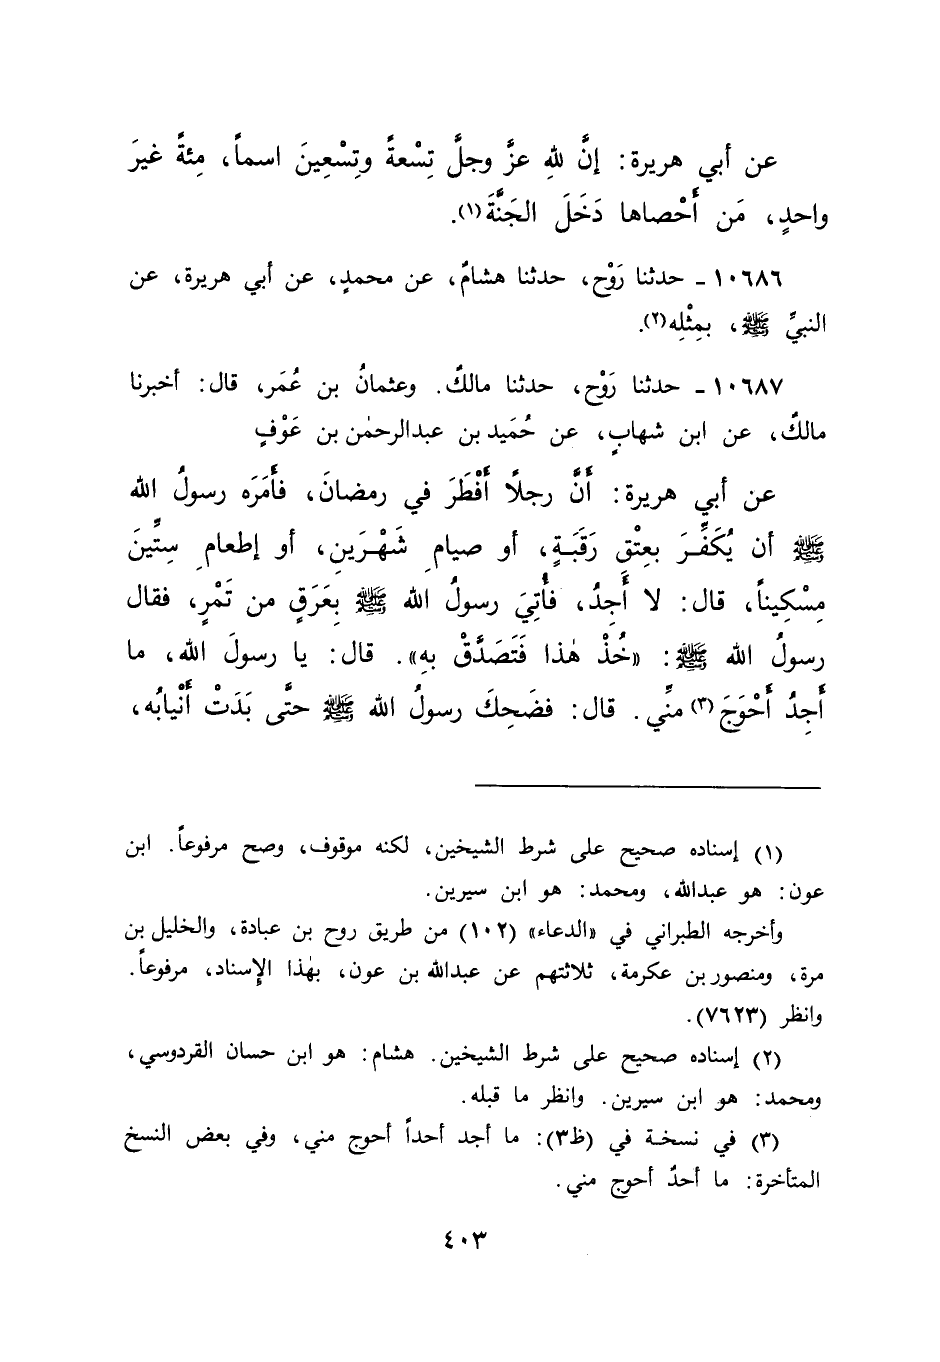 عن أبي هريرة: إنَّ للهِ عزَّ وجلَّ تِسْعةً وتِسْعِينَ اسماً، مِئةً غيرَ
واحدٍ، مَن أَحْصاها دَخَلَ الجَنَّةَ(١).
١٠٦٨٦ - حدثنا رَوْح، حدثنا هشامٌ، عن محمدٍ، عن أبي هريرة، عن
النبيِّ ﷺ، بمِثْلِه(٢).
١٠٦٨٧ - حدثنا رَوْح، حدثنا مالكٌ. وعثمانُ بن عُمَر، قال: أخبرنا
مالكٌ، عن ابن شهابٍ، عن حُمَيد بن عبدالرحمٰن بن عَوْفٍ
عن أبي هريرة: أَنَّ رجلاً أَفْطَرَ في رمضانَ، فأَمَرَه رسولُ الله
ﷺ أن يُكَفِّرَ بعِتْقِ رَقَبَةٍ، أو صيامِ شَهْرَينِ، أو إطعامِ سِتِّينَ
مِسْكِيناً، قال: لا أَجِدُ، فأُتِيَ رسولُ الله ﷺ بعَرَقٍ من تَمْرٍ، فقال
رسولُ الله ﷺ: «خُذْ هٰذا فَتَصَدَّقْ بهِ». قال: يا رسولَ الله، ما
أَجِدُ أَحْوَجَ(٣) منِّي. قال: فضَحِكَ رسولُ الله ﷺ حتَّى بَدَتْ أَنْيابُه،
(١) إسناده صحيح على شرط الشيخين، لكنه موقوف، وصح مرفوعاً. ابن
عون: هو عبدالله، ومحمد: هو ابن سيرين.
وأخرجه الطبراني في «الدعاء» (١٠٢) من طريق روح بن عبادة، والخليل بن
مرة، ومنصور بن عكرمة، ثلاثتهم عن عبدالله بن عون، بهٰذا الإسناد، مرفوعاً.
وانظر (٧٦٢٣).
(٢) إسناده صحيح على شرط الشيخين. هشام: هو ابن حسان القردوسي،
ومحمد: هو ابن سيرين. وانظر ما قبله.
(٣) في نسخة في (ظ٣): ما أجد أحداً أحوج مني، وفي بعض النسخ
المتأخرة: ما أحدٌ أحوج مني.
٤٠٣